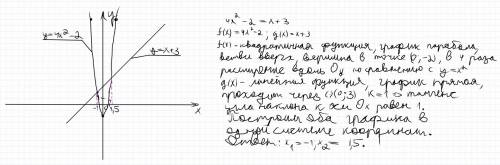 y
y=4x²-2
y=x+3
-1
1,5
x
4x²-2=x+3
f(x)=4x²-2; g(x)=x+3
f(x)-квадратичная функция, график парабола,
ветви вверх, вершина в точке (0,-2), в 4 раза
расширение вдоль Oy по сравнению с y=x²
g(x)-линейная функция, график прямая,
проходит через (0;3), k=1 = тангенс
угла наклона к оси Ox равен 1.
Построим оба графика в
одной системе координат.
Ответ: x₁=-1, x₂= 1,5.